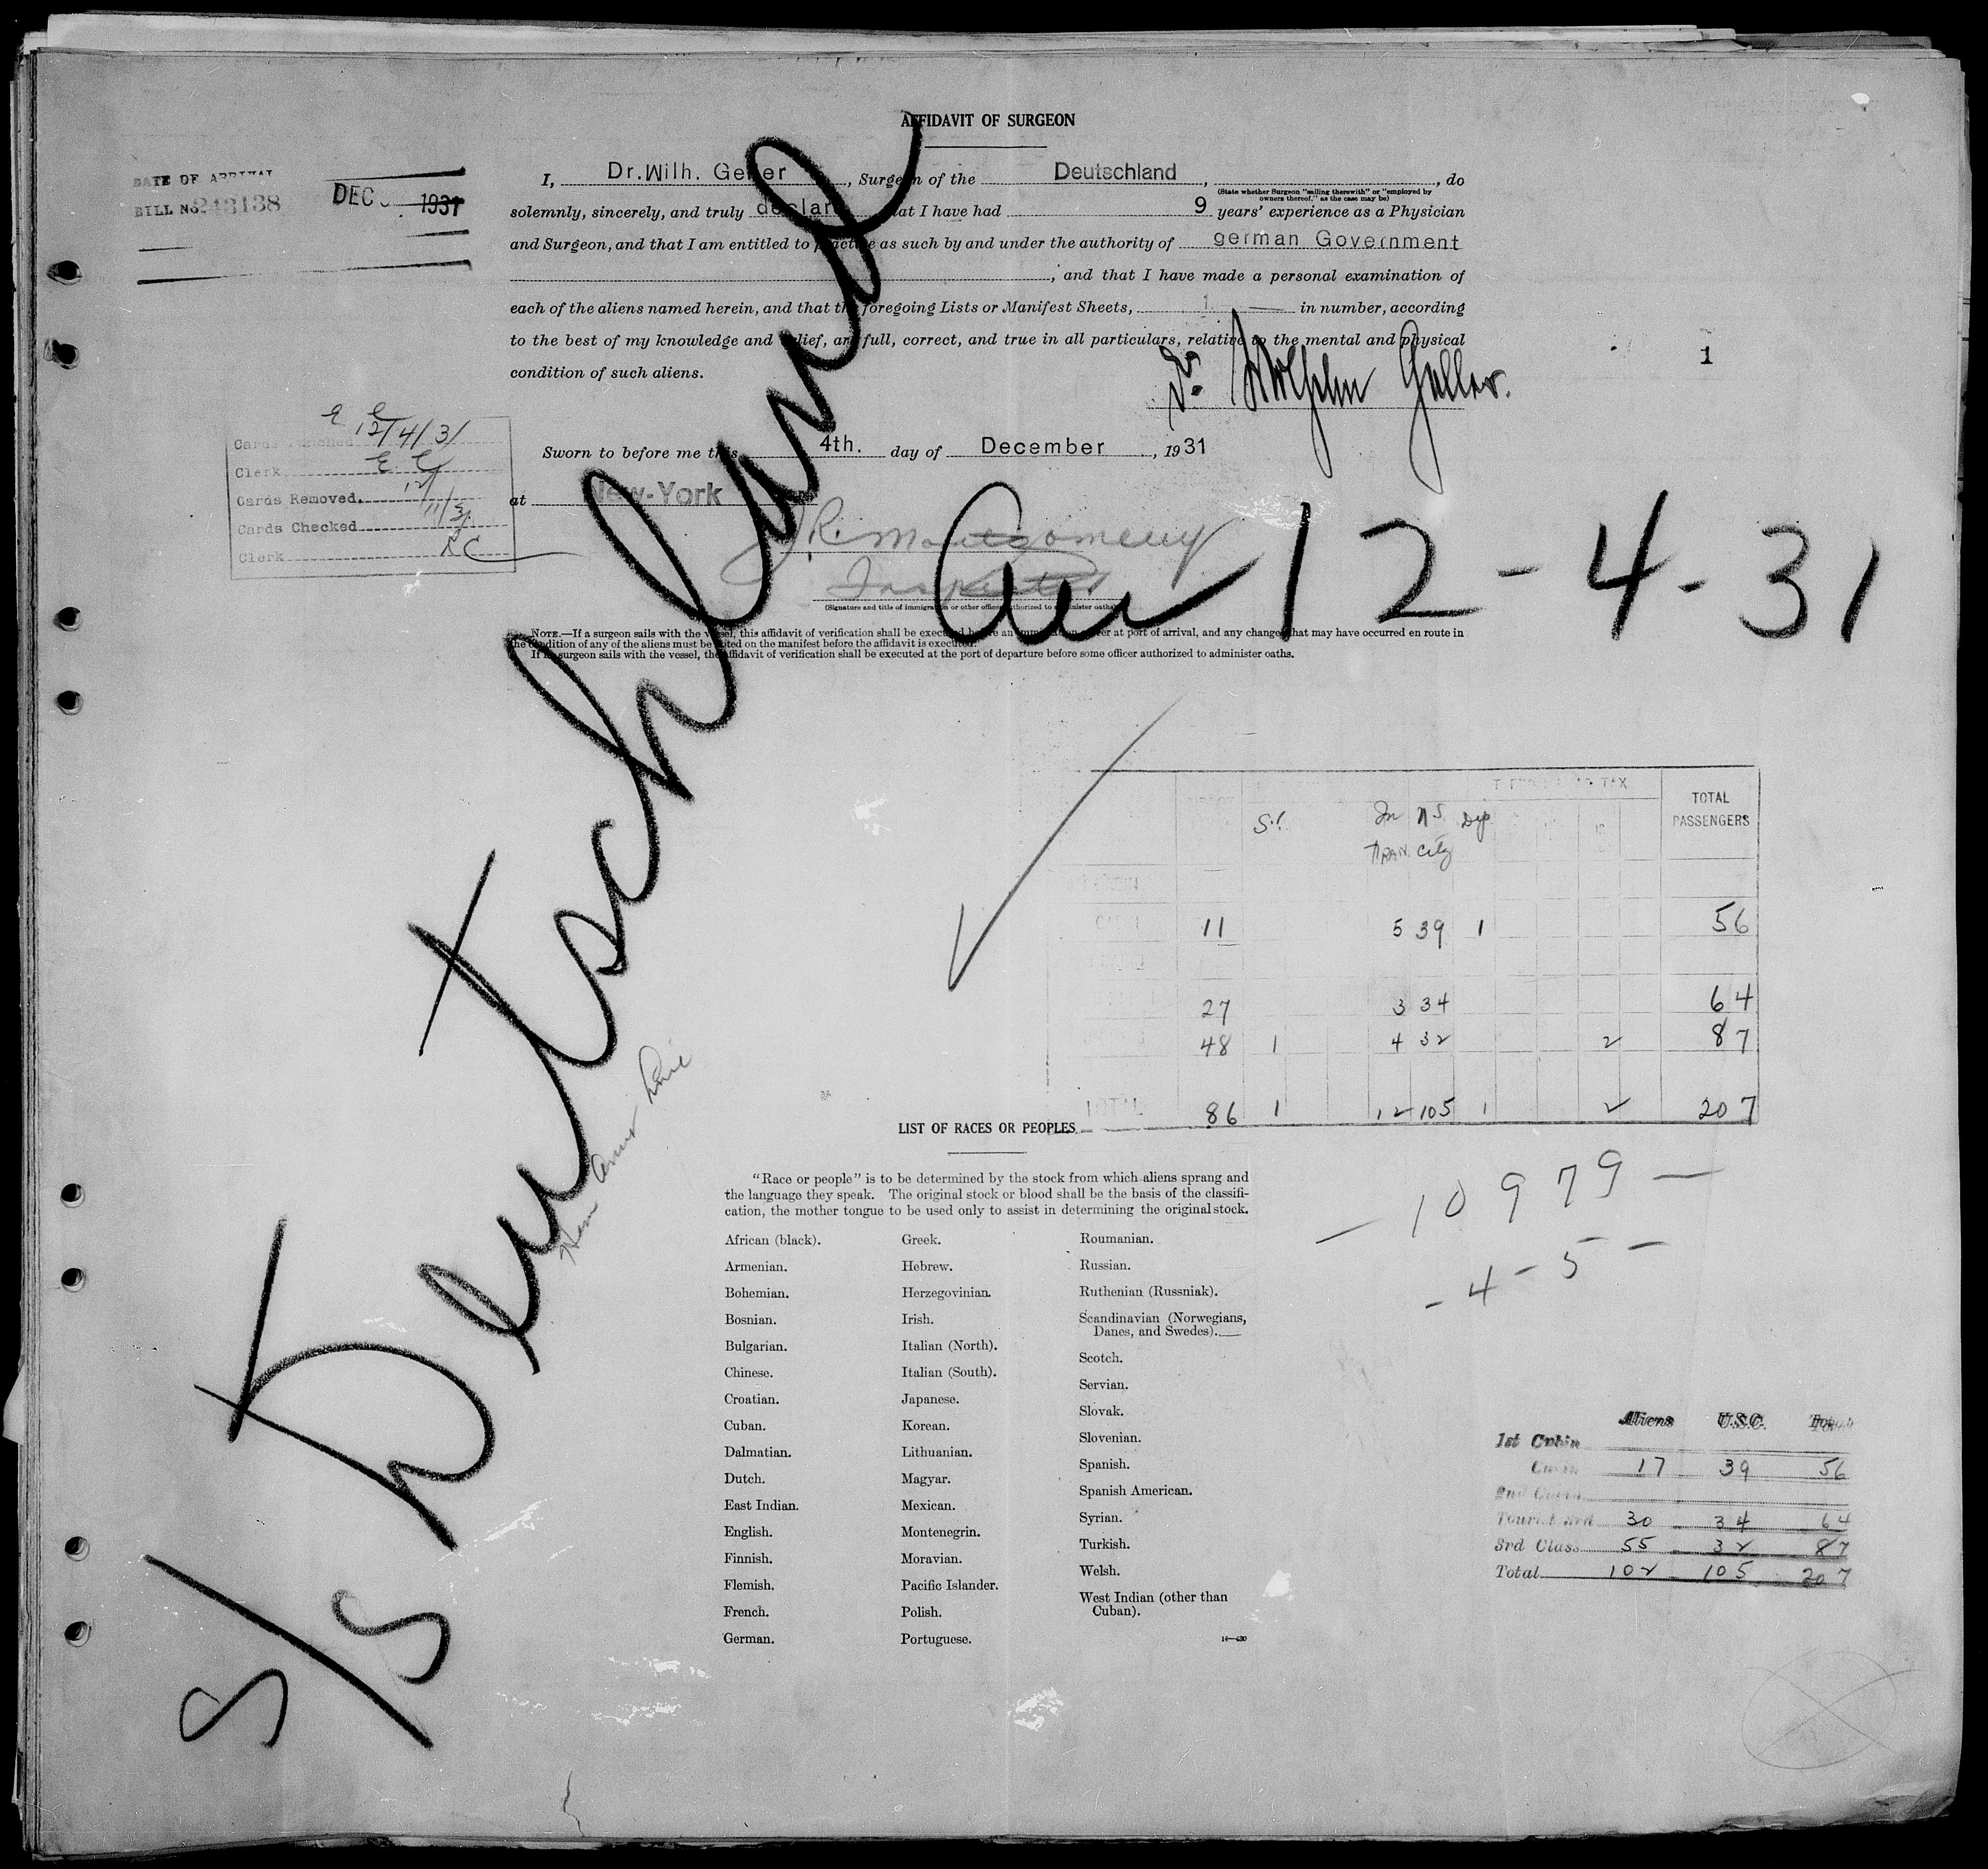 AFFIDAVIT OF SURGEON
DATE OF ARRIVAL DEC 1931
BILL No 243138
I, Dr.Wilh. Geller, Surgeon of the Deutschland, , do
(State whether Surgeon "sailing therewith" or "employed by owners thereof," as the case may be)
solemnly, sincerely, and truly declare that I have had 9 years' experience as a Physician
and Surgeon, and that I am entitled to practice as such by and under the authority of german Government
, and that I have made a personal examination of
each of the aliens named herein, and that the foregoing Lists or Manifest Sheets, 1 in number, according
to the best of my knowledge and belief, are full, correct, and true in all particulars, relative to the mental and physical
condition of such aliens.
1
Dr. Wilhelm Geller.
Sworn to before me this 4th. day of December, 1931
at New-York
J.R. Montgomery
Inspector
(Signature and title of immigration or other officer authorized to administer oaths)
Cards 12/4/31
Clerk
Cards Removed
Cards Checked
Clerk
Arr 12-4-31
NOTE.—If a surgeon sails with the vessel, this affidavit of verification shall be executed before an immigration officer at port of arrival, and any changes that may have occurred en route in
the condition of any of the aliens must be noted on the manifest before the affidavit is executed.
If no surgeon sails with the vessel, the affidavit of verification shall be executed at the port of departure before some officer authorized to administer oaths.
S/S Deutschland
Ham Amer Line
TAX TOTAL PASSENGERS
S.I. In Tran. N.S. City Dep
11 5 39 1 56
27 3 34 64
48 1 4 32 2 87
TOTAL 86 1 12 105 1 2 207
— 10979 —
- 4 - 5 -
LIST OF RACES OR PEOPLES
"Race or people" is to be determined by the stock from which aliens sprang and
the language they speak. The original stock or blood shall be the basis of the classifi-
cation, the mother tongue to be used only to assist in determining the original stock.
African (black).
Armenian.
Bohemian.
Bosnian.
Bulgarian.
Chinese.
Croatian.
Cuban.
Dalmatian.
Dutch.
East Indian.
English.
Finnish.
Flemish.
French.
German.
Greek.
Hebrew.
Herzegovinian.
Irish.
Italian (North).
Italian (South).
Japanese.
Korean.
Lithuanian.
Magyar.
Mexican.
Montenegrin.
Moravian.
Pacific Islander.
Polish.
Portuguese.
Roumanian.
Russian.
Ruthenian (Russniak).
Scandinavian (Norwegians,
Danes, and Swedes).
Scotch.
Servian.
Slovak.
Slovenian.
Spanish.
Spanish American.
Syrian.
Turkish.
Welsh.
West Indian (other than
Cuban).
Aliens U.S.C. Total
1st Cabin
Cabin 17 39 56
2nd Cabin
Tourist 3rd 30 34 64
3rd Class 55 32 87
Total 102 105 207